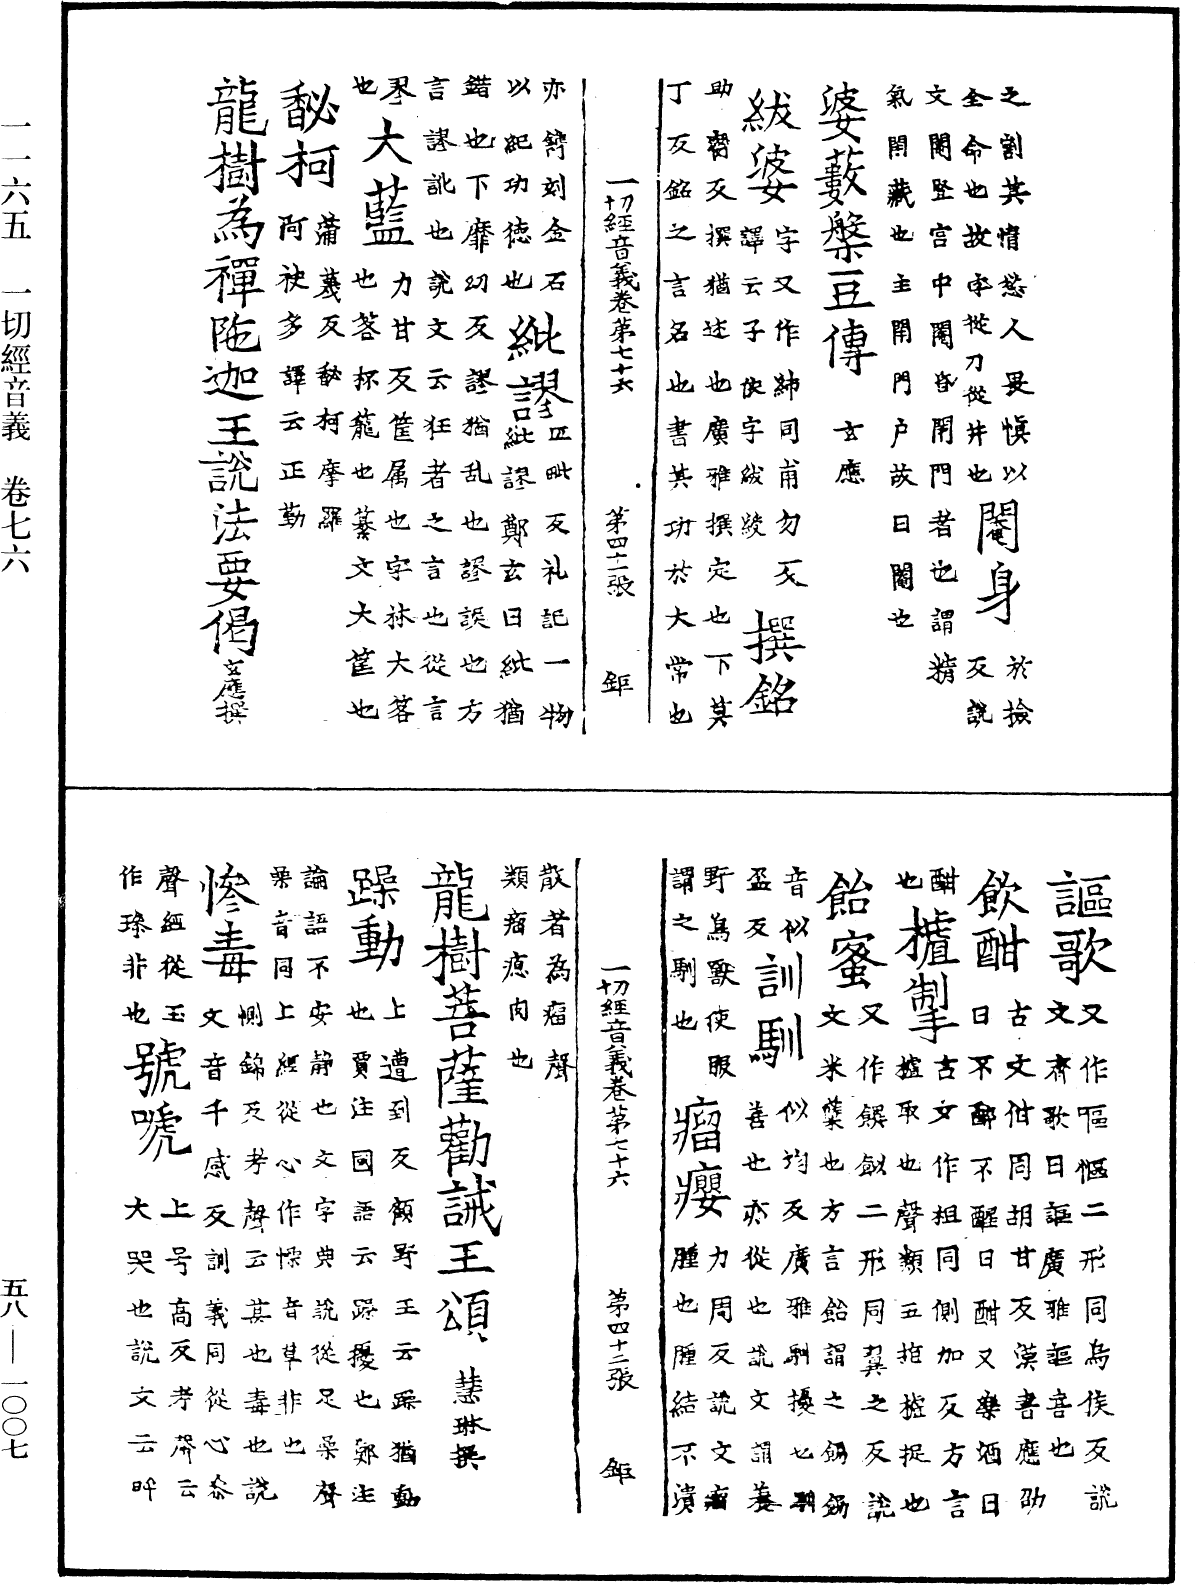 一一六五　一切經音義　卷七六
之割其情慾人畏愼以
全命也故字從刀從井也
閹身
於撿
反說
文閹豎宮中閹昏閇門者也謂精
氣閇藏也主閇門户故曰閹也
婆藪槃豆傳　玄應
紱婆
字又作紼同甫勿反
譯云子使字紱綾
撰銘
助臠反撰猶述也廣雅撰定也下莫
丁反銘之言名也書其功於大常也
一切經音義卷第七十六　第四十一張　鉅
亦鐫刻金石
以紀功德也
紕謬
匹毗反礼記一物
紕謬鄭玄曰紕猶
錯也下靡幼反謬猶乱也謬誤也方
言謬訛也說文云狂者之言也從言
翏也
大藍
力甘反筐属也字林大客
也荅杯籠也纂文大筐也
馝柯
蒲蔑反馝柯摩羅
阿袂多譯云正勤
龍樹為禪陁迦王說法要偈　玄應撰
謳歌
又作嘔慪二形同烏侯反說
文齊歌曰謳廣雅謳音也
飲酣
古文佄同胡甘反漢書應劭
曰不醉不醒曰酣又樂酒曰
酣也
樝掣
古文作柤同側加反方言
樝取也聲類五指樝捉也
飴蜜
又作䬮𩛿二形同翼之反說
文米糵也方言飴謂之餳餳
音似
盈反
訓馴
似均反廣雅馴擾也馴
善也亦從也說文謂養
野鳥獸使服
謂之馴也
瘤癭
力周反說文瘤
腫也腫結不潰
一切經音義卷第七十六　第四十二張　鉅
散者為瘤聲
類瘤瘜肉也
龍樹菩薩勸誡王頌　慧琳撰
躁動
上遭到反顧野王云躁猶動
也賈注國語云躁擾也鄭注
論語不安静也文字典說從足喿聲
喿音同上經從心作懆音草非也
慘毒
惻錦反考聲云甚也毒也說
文音千感反訓義同從心叅
聲經從玉
作㻸非也
號唬
上号高反考聲云
大哭也說文云呼
五八—一〇〇七